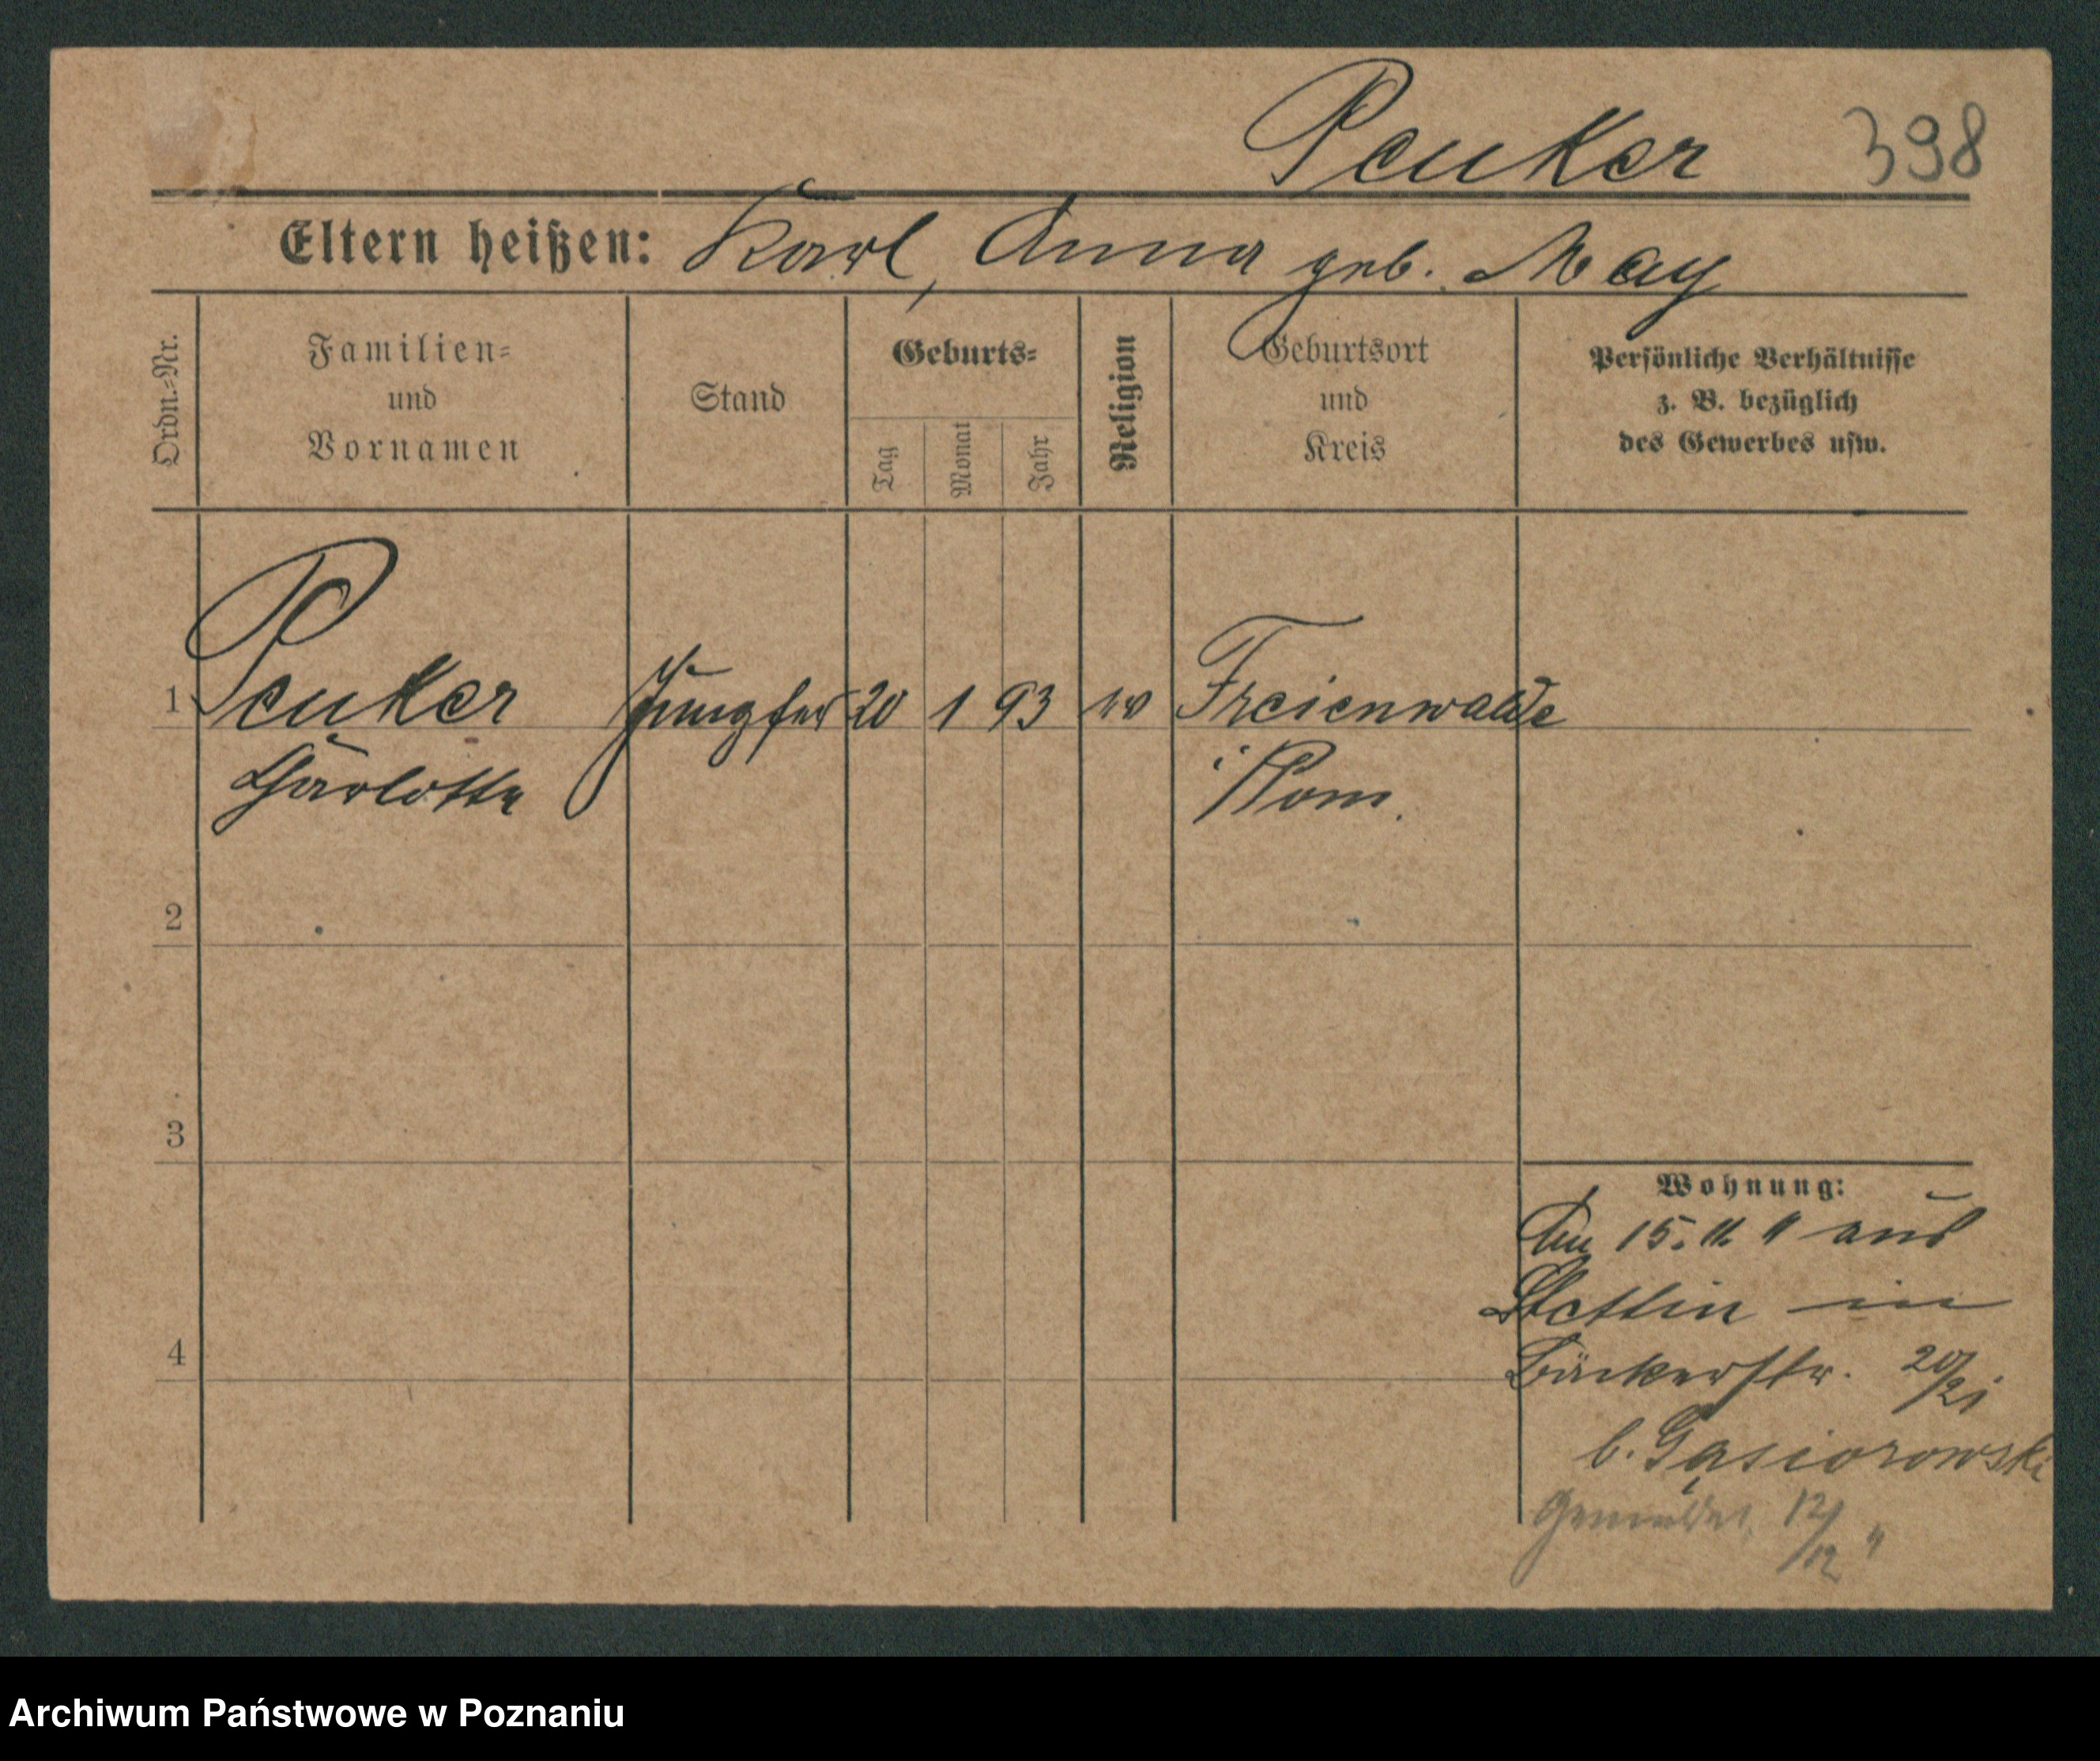 Peuker 398
Eltern heißen: Karl, Anna geb. May
Ordn.=Nr.
Familien=
und
Vornamen
Stand
Geburts=
Tag
Monat
Jahr
Religion
Geburtsort
und
Kreis
Persönliche Verhältnisse
z. B. bezüglich
des Gewerbes usw.
1 Peuker Jungfer 20 1 93 ev Freienwalde
Charlotte i/Pom.
2
3
Wohnung:
15. 11. 11 aus
Stettin in
4 Bäckerstr. 20/21
b. Gąsiorowski
Gemeldet 12/12 11
Archiwum Państwowe w Poznaniu